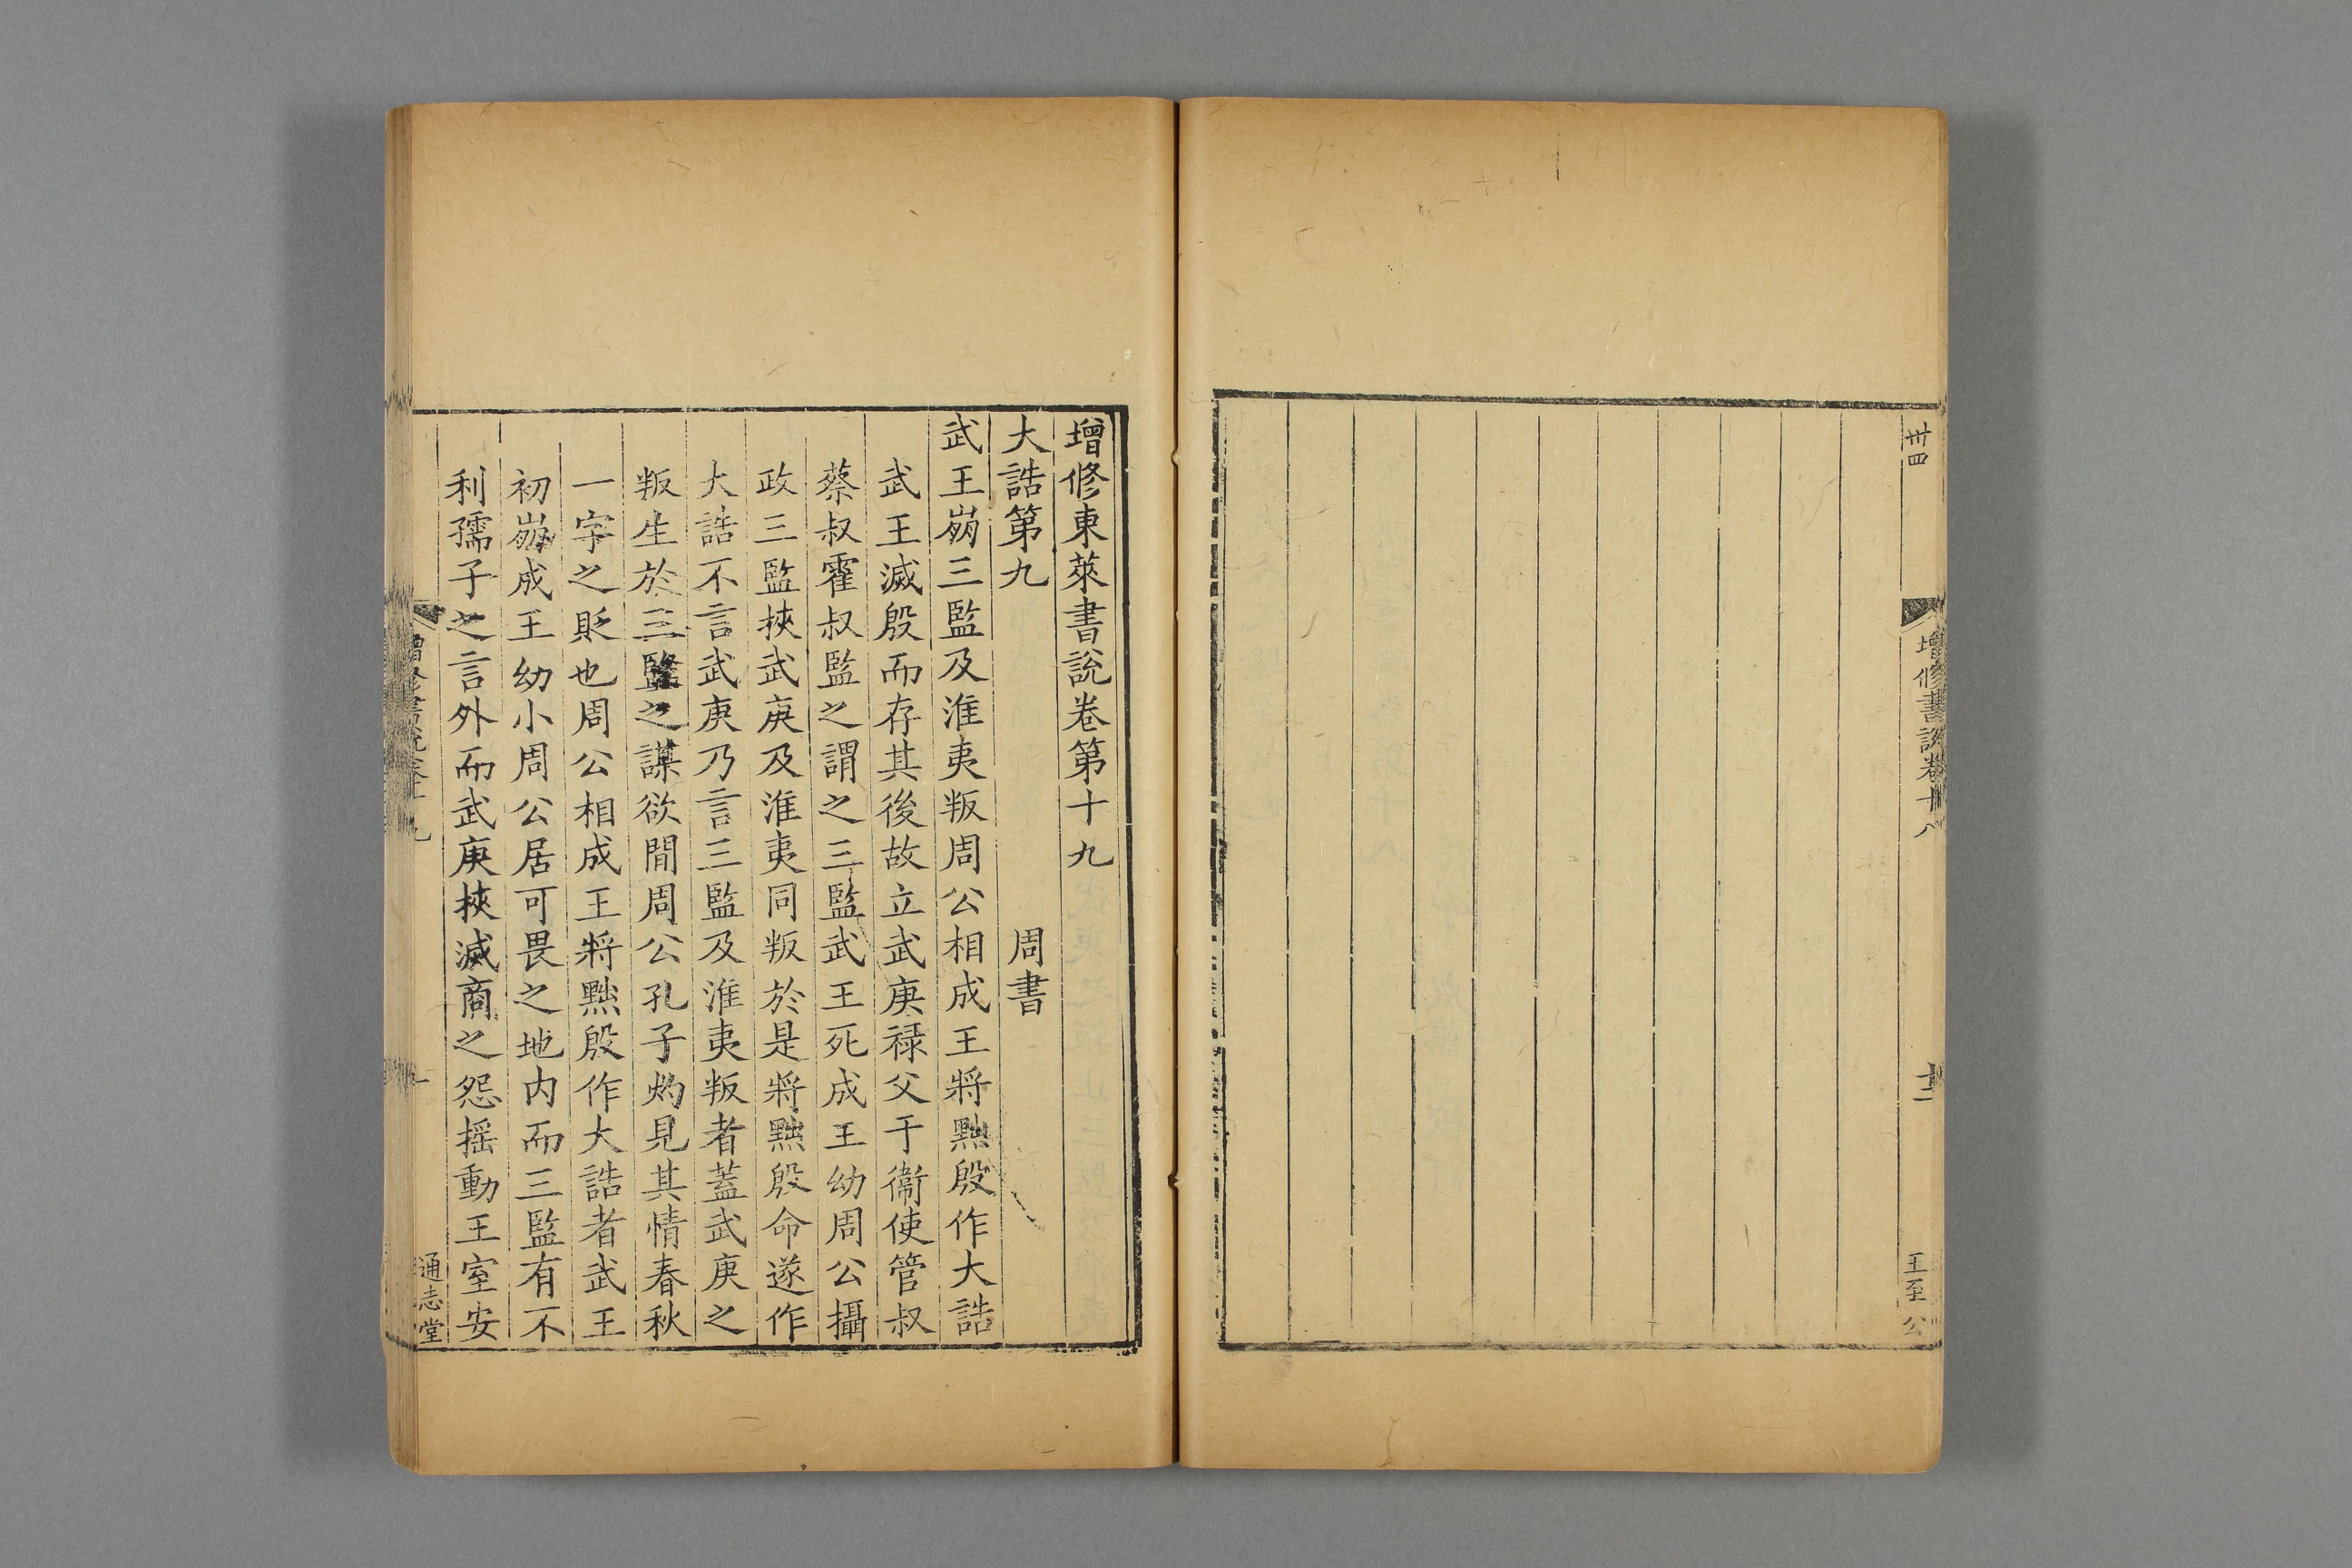 卅四
增修書說卷十八
十二
王至公
增修東萊書說卷第十九
大誥第九 周書
武王崩三監及淮夷叛周公相成王將黜殷作大誥
武王滅殷而存其後故立武庚祿父于衞使管叔
蔡叔霍叔監之謂之三監武王死成王幼周公攝
政三監挾武庚及淮夷同叛於是將黜殷命遂作
大誥不言武庚乃言三監及淮夷叛者蓋武庚之
叛生於三監之謀欲閒周公孔子灼見其情春秋
一字之貶也周公相成王將黜殷作大誥者武王
初崩成王幼小周公居可畏之地内而三監有不
利孺子之言外而武庚挾滅商之怨摇動王室安
增修書說卷十九
一
通志堂